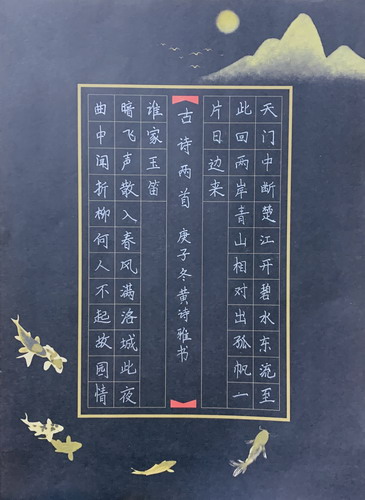 天门中断楚江开碧水东流至
此回两岸青山相对出孤帆一
片日边来
古诗两首 庚子冬黄诗雅书
谁家玉笛
暗飞声散入春风满洛城此夜
曲中闻折柳何人不起故园情